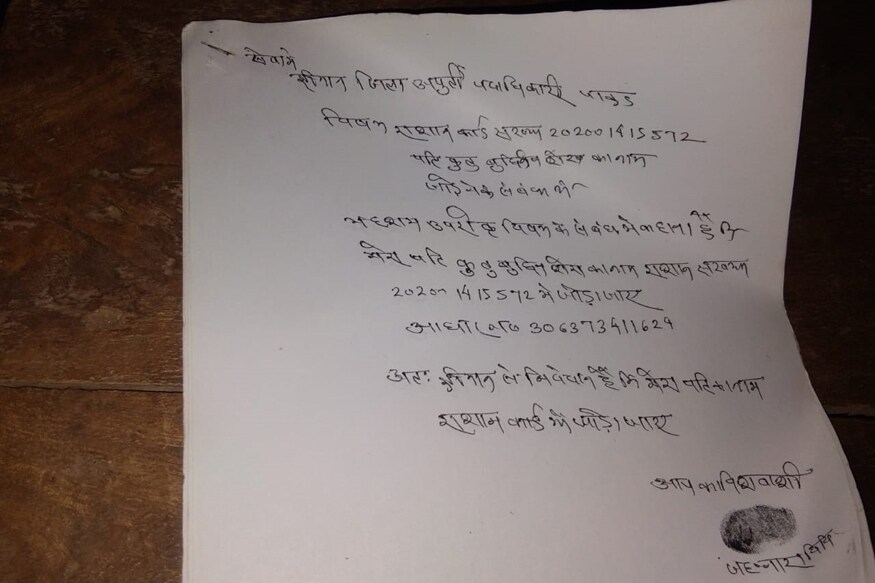 सेवामे
श्रीमान जिला आपुर्ती पदाधिकारी पाकुड
विषय राशान कार्ड संख्या 202001415572
पति कुतुबुद्दिन शेख का नाम
जोड़ने के संबंध में
महाशय उपरोक्त विषय के संबंध में कहना है कि
मेरा पति कुतुबुद्दिन शेख का नाम राशान संख्या
202001415572 में जोड़ा जाए
आधार न० 306373411629
अतः श्रीमान से निवेदन है कि मेरा पति का नाम
राशान कार्ड में जोड़ा जाए
आप का विश्वासी
बिबि